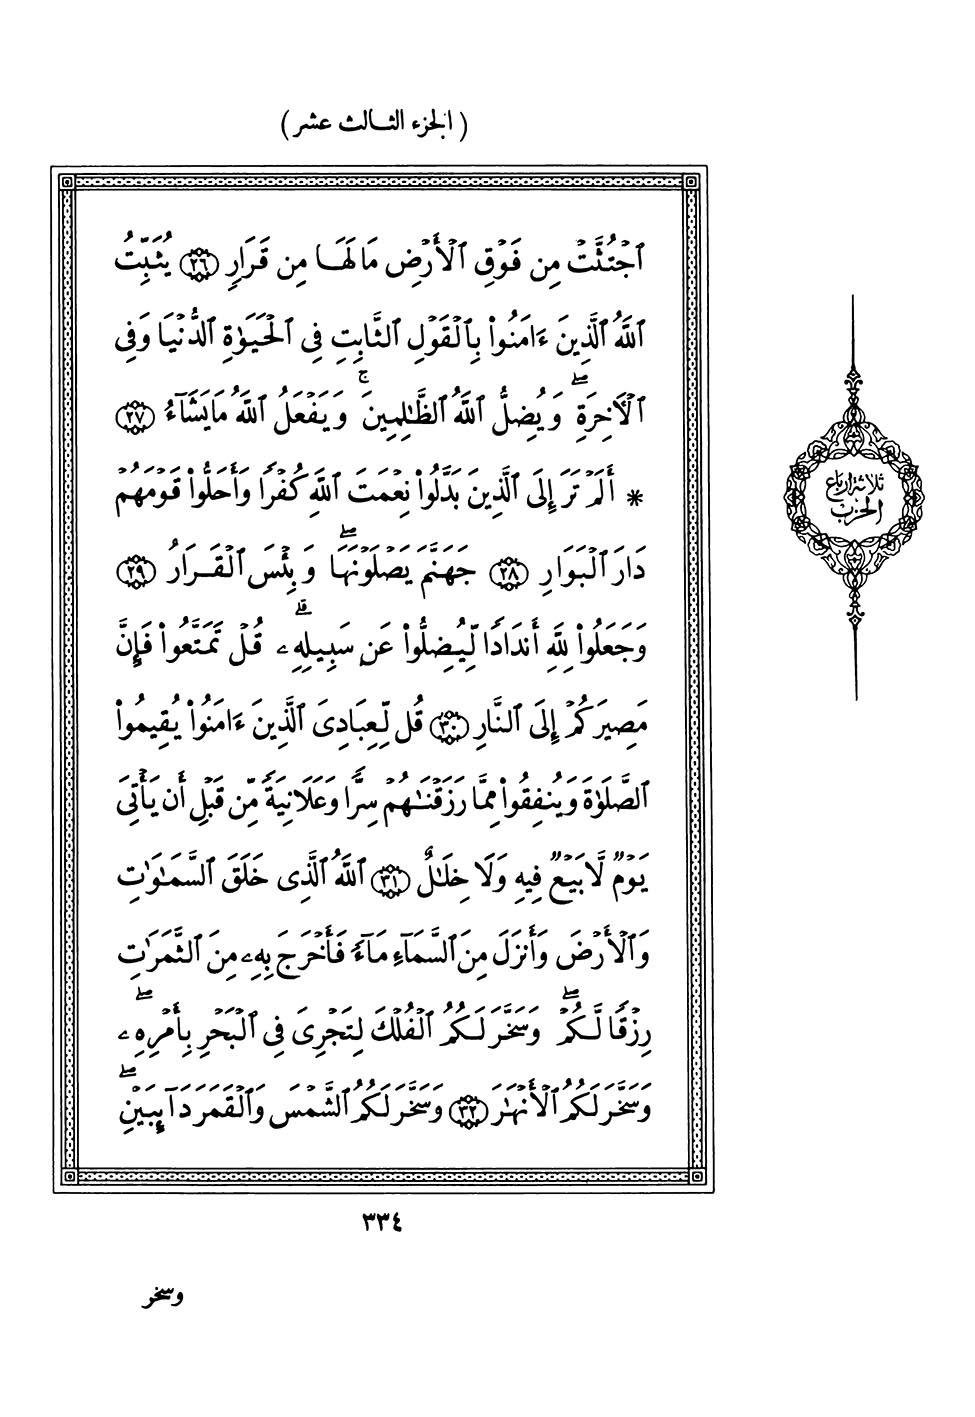 (الجزء الثالث عشر)
ٱجْتُثَّتْ مِن فَوْقِ ٱلْأَرْضِ مَا لَهَا مِن قَرَارٍ ٢٦ يُثَبِّتُ
ٱللَّهُ ٱلَّذِينَ ءَامَنُوا۟ بِٱلْقَوْلِ ٱلثَّابِتِ فِى ٱلْحَيَوٰةِ ٱلدُّنْيَا وَفِى
ٱلْءَاخِرَةِ ۖ وَيُضِلُّ ٱللَّهُ ٱلظَّـٰلِمِينَ ۚ وَيَفْعَلُ ٱللَّهُ مَا يَشَآءُ ٢٧
* أَلَمْ تَرَ إِلَى ٱلَّذِينَ بَدَّلُوا۟ نِعْمَتَ ٱللَّهِ كُفْرًا وَأَحَلُّوا۟ قَوْمَهُمْ
دَارَ ٱلْبَوَارِ ٢٨ جَهَنَّمَ يَصْلَوْنَهَا ۖ وَبِئْسَ ٱلْقَرَارُ ٢٩
وَجَعَلُوا۟ لِلَّهِ أَندَادًا لِّيُضِلُّوا۟ عَن سَبِيلِهِۦ ۗ قُلْ تَمَتَّعُوا۟ فَإِنَّ
مَصِيرَكُمْ إِلَى ٱلنَّارِ ٣٠ قُل لِّعِبَادِىَ ٱلَّذِينَ ءَامَنُوا۟ يُقِيمُوا۟
ٱلصَّلَوٰةَ وَيُنفِقُوا۟ مِمَّا رَزَقْنَـٰهُمْ سِرًّا وَعَلَانِيَةً مِّن قَبْلِ أَن يَأْتِىَ
يَوْمٌ لَّا بَيْعٌ فِيهِ وَلَا خِلَـٰلٌ ٣١ ٱللَّهُ ٱلَّذِى خَلَقَ ٱلسَّمَـٰوَٰتِ
وَٱلْأَرْضَ وَأَنزَلَ مِنَ ٱلسَّمَآءِ مَآءً فَأَخْرَجَ بِهِۦ مِنَ ٱلثَّمَرَٰتِ
رِزْقًا لَّكُمْ ۖ وَسَخَّرَ لَكُمُ ٱلْفُلْكَ لِتَجْرِىَ فِى ٱلْبَحْرِ بِأَمْرِهِۦ ۖ
وَسَخَّرَ لَكُمُ ٱلْأَنْهَـٰرَ ٣٢ وَسَخَّرَ لَكُمُ ٱلشَّمْسَ وَٱلْقَمَرَ دَآئِبَيْنِ ۖ
ثلاثة أرباع
الحزب
٣٣٤
وسخر